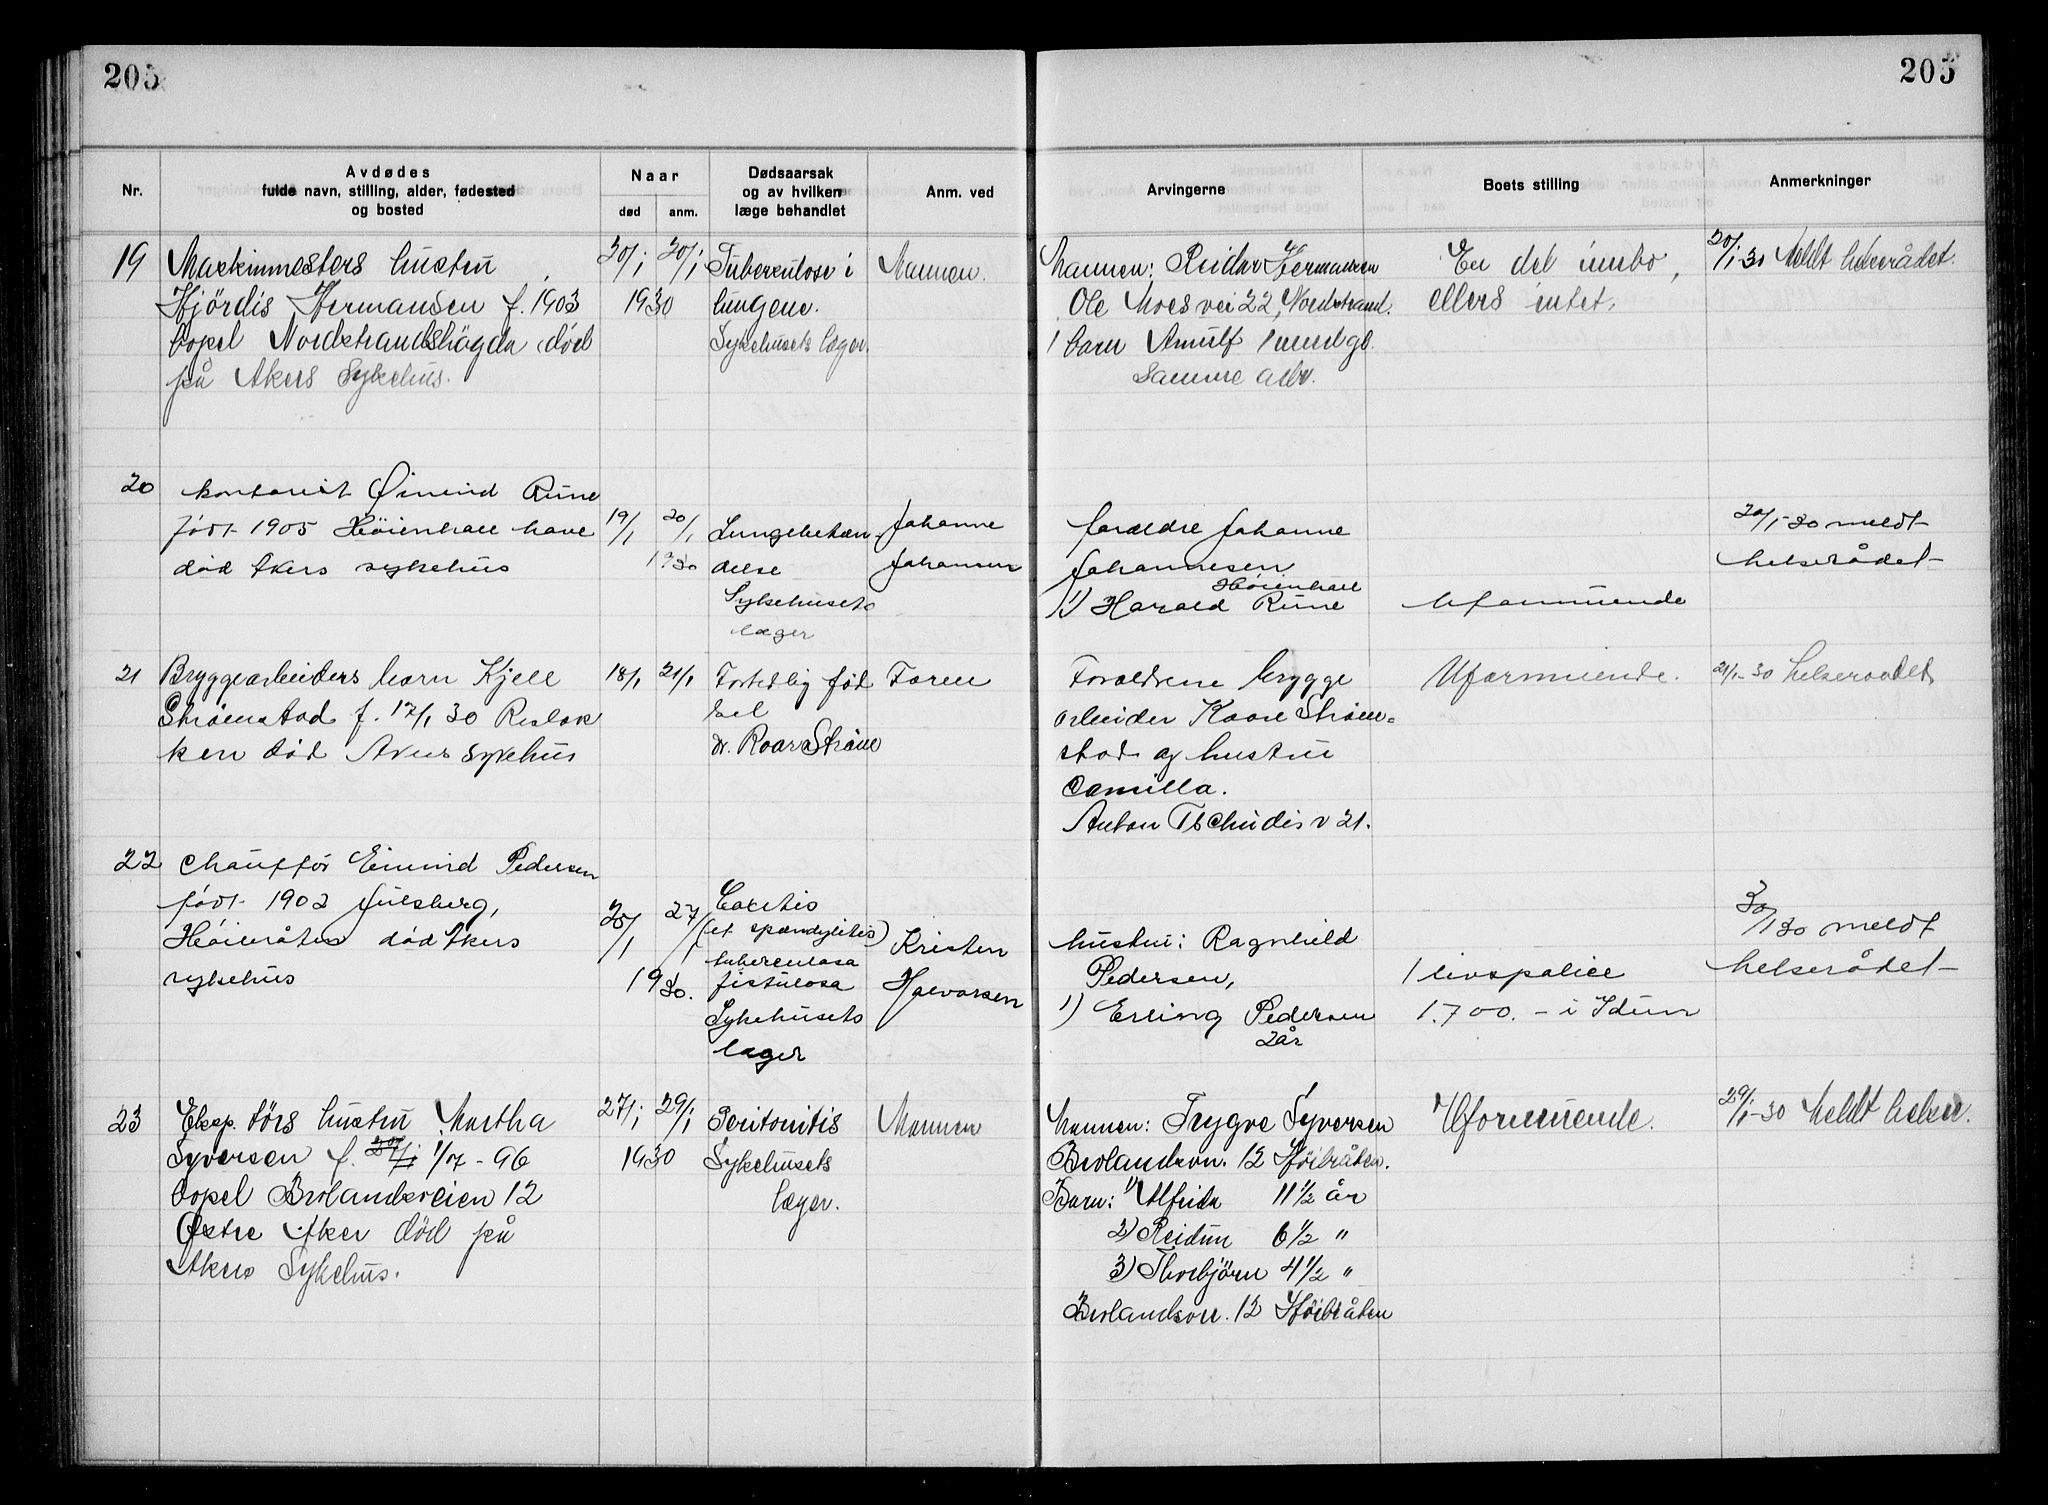 205
205
Nr.
Avdødes
fulde navn, stilling, alder, fødested
og bosted
Naar
død
anm.
Dødsaarsak
og av hvilken
læge behandlet
Anm. ved
Arvingerne
Boets stilling
Anmerkninger
19
Maskinmesters hustru
Hjördis Hermansen f. 1903
bopel Nordstrandshögda, död
på Akers Sykehus.
20/1
20/1
1930
Tuberculose i
lungene.
Sykehusets læger.
Mannen.
Mannen: Reidar Hermansen
Ole Moes vei 22, Nordstrand.
1 barn Arnulf 1 mnd gl.
Samme adr.
En del innbo,
ellers intet.
20/1-30 Meldt helserådet.
20
kontorist Øivind Rune
født 1905 Høienhall have
død Akers sykehus
19/1
20/1
1930
Lungebeten
delse
Sykehusets
læger
Johanne
Johansen
foreldre Johanne
Johannesen
Høienhall
1) Harald Rune
Uformuende
20/1-30 meldt
helserådet
21
Bryggearbeiders barn Kjell
Strømstad f. 17/1 30 Risløk
ken død Akers sykehus
18/1
21/1
Fortidlig fød
sel
dr. Roar Strøm
Faren
Foreldrene brygge
arbeider Kaare Strøm-
stad og hustru
Camilla.
Anton Tschudis v 21.
Uformuende.
21/1-30 helseraadet
22
Chauffør Eivind Pedersen
født 1902
død Akers
sykehus
1930.
27/1
Coxitis
(et spondylitis)
tuberculosa
fistulosa
Sykehusets
læger
Kristen
Halvorsen
hustru: Ragnhild
Pedersen,
1) Erling Pedersen
2 år
1 livspolice
1.700.- i Idun
30/1 30 meldt
helserådet
23
Eksp. törs hustru Martha
Syversen f. 1/07-96
bopel Brolandsveien 12
Østre Aker död på
Akers Sykehus.
27/1
29/1
1930
Peritonitis
Sykehusets
læger.
Mannen
Mannen: Trygve Syversen
Brolandsvn. 12 Höibråten.
Barn: 1) Alfrida 11 1/2 år
2) Reidun 6 1/2 "
3) Thorbjörn 4 1/2 "
Brolandsvn. 12 Höibråten
Uformuende.
29/1-30 Meldt helser.